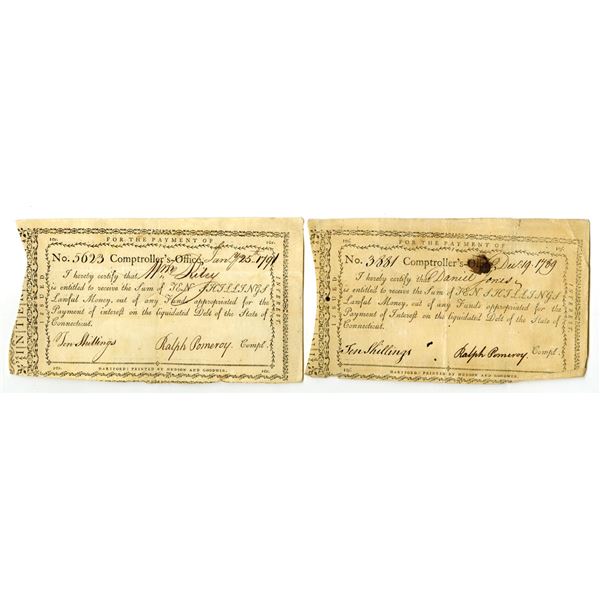 FOR THE PAYMENT OF
10s. 10s.
No. 5623 Comptroller's-Office, Jany 25 1791
I hereby certify that Wm Riley
is entitled to receive the Sum of TEN SHILLINGS
Lawful Money, out of any Fund appropriated for the
Payment of interest on the liquidated Debt of the State of
Connecticut.
Ten Shillings Ralph Pomeroy Compt.
10s. HARTFORD: PRINTED BY HUDSON AND GOODWIN. 10s.
INTE
FOR THE PAYMENT OF
10s. 10s.
No. 3881 Comptroller's Dec 19 1789
I hereby certify that Daniel Jones
is entitled to receive the Sum of TEN SHILLINGS
Lawful Money, out of any Funds appropriated for the
Payment of Interest on the liquidated Debt of the State of
Connecticut.
Ten Shillings Ralph Pomeroy Compt.
HARTFORD: PRINTED BY HUDSON AND GOODWIN.
INTEREST